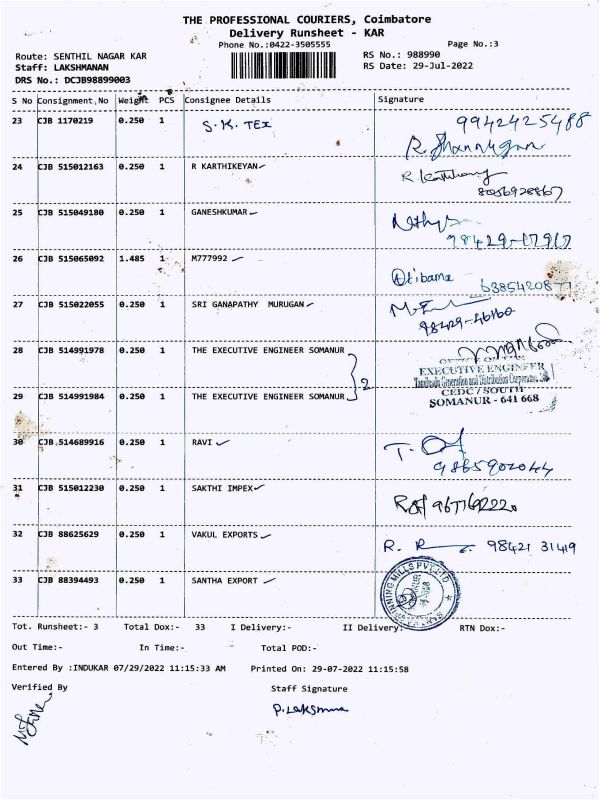 THE PROFESSIONAL COURIERS, Coimbatore
Delivery Runsheet - KAR
Phone No.:0422-3505555
Page No.:3
Route: SENTHIL NAGAR KAR
RS No.: 988990
Staff: LAKSHMANAN
RS Date: 29-Jul-2022
DRS No.: DCJB98899003
S No Consignment,No Weight PCS Consignee Details Signature
23 CJB 1170219 0.250 1 S.K. TEX 9942425488
R. Shanmugan
24 CJB 515012163 0.250 1 R KARTHIKEYAN
8056928867
25 CJB 515049180 0.250 1 GANESHKUMAR
98429-17917
26 CJB 515065092 1.485 1 M777992
6385420877
27 CJB 515022055 0.250 1 SRI GANAPATHY MURUGAN
98429-46160
28 CJB 514991978 0.250 1 THE EXECUTIVE ENGINEER SOMANUR
OFFICE OF THE
EXECUTIVE ENGINEER
2
Tamilnadu Generation and Distribution Corporation
CEDC / SOUTH
29 CJB 514991984 0.250 1 THE EXECUTIVE ENGINEER SOMANUR
SOMANUR - 641 668
30 CJB 514689916 0.250 1 RAVI
9865902044
31 CJB 515012230 0.250 1 SAKTHI IMPEX
32 CJB 88625629 0.250 1 VAKUL EXPORTS
R. R 98421 31419
33 CJB 88394493 0.250 1 SANTHA EXPORT
MILLS PVT LTD
Tot. Runsheet:- 3 Total Dox:- 33 I Delivery:- II Delivery:- RTN Dox:-
Out Time:- In Time:- Total POD:-
Entered By :INDUKAR 07/29/2022 11:15:33 AM Printed On: 29-07-2022 11:15:58
Verified By Staff Signature
P. Lakshmna